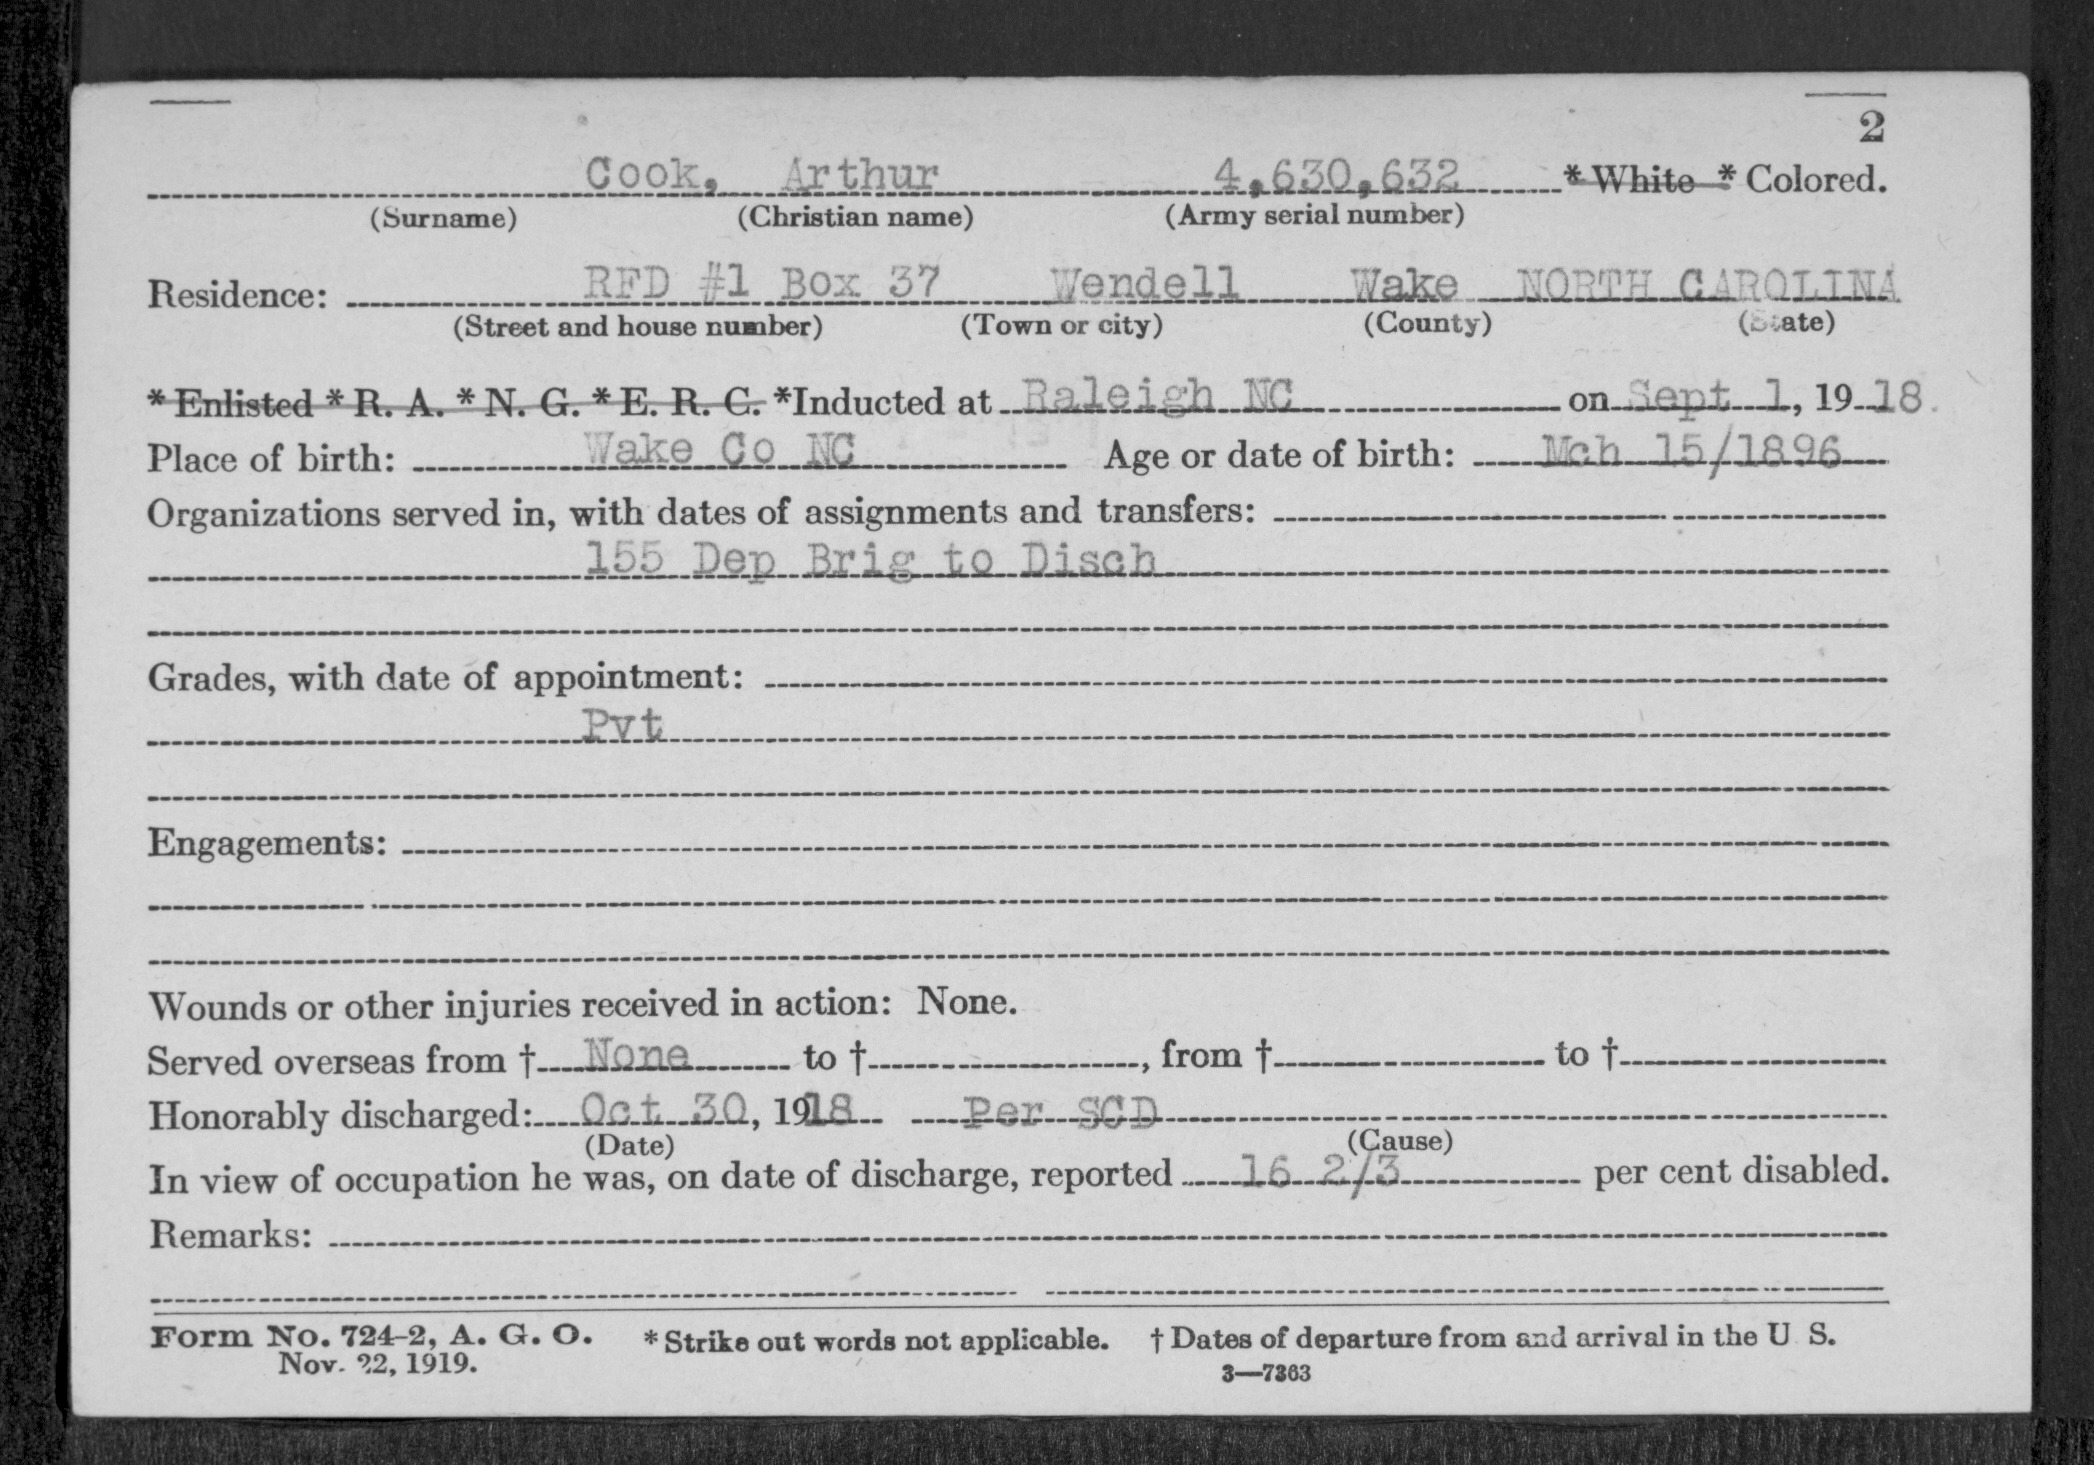 2
Cook, Arthur 4,630,632 * White * Colored.
(Surname) (Christian name) (Army serial number)
Residence: RFD #1 Box 37 Wendell Wake NORTH CAROLINA
(Street and house number) (Town or city) (County) (State)
* Enlisted * R. A. * N. G. * E. R. C. *Inducted at Raleigh NC on Sept 1, 19 18.
Place of birth: Wake Co NC Age or date of birth: Mch 15/1896
Organizations served in, with dates of assignments and transfers:
155 Dep Brig to Disch
Grades, with date of appointment:
Pvt
Engagements:
Wounds or other injuries received in action: None.
Served overseas from † None to †, from † to †
Honorably discharged: Oct 30, 1918 Per SCD
(Date) (Cause)
In view of occupation he was, on date of discharge, reported 16 2/3 per cent disabled.
Remarks:
Form No. 724-2, A. G. O. * Strike out words not applicable. † Dates of departure from and arrival in the U S.
Nov. 22, 1919. 3—7363